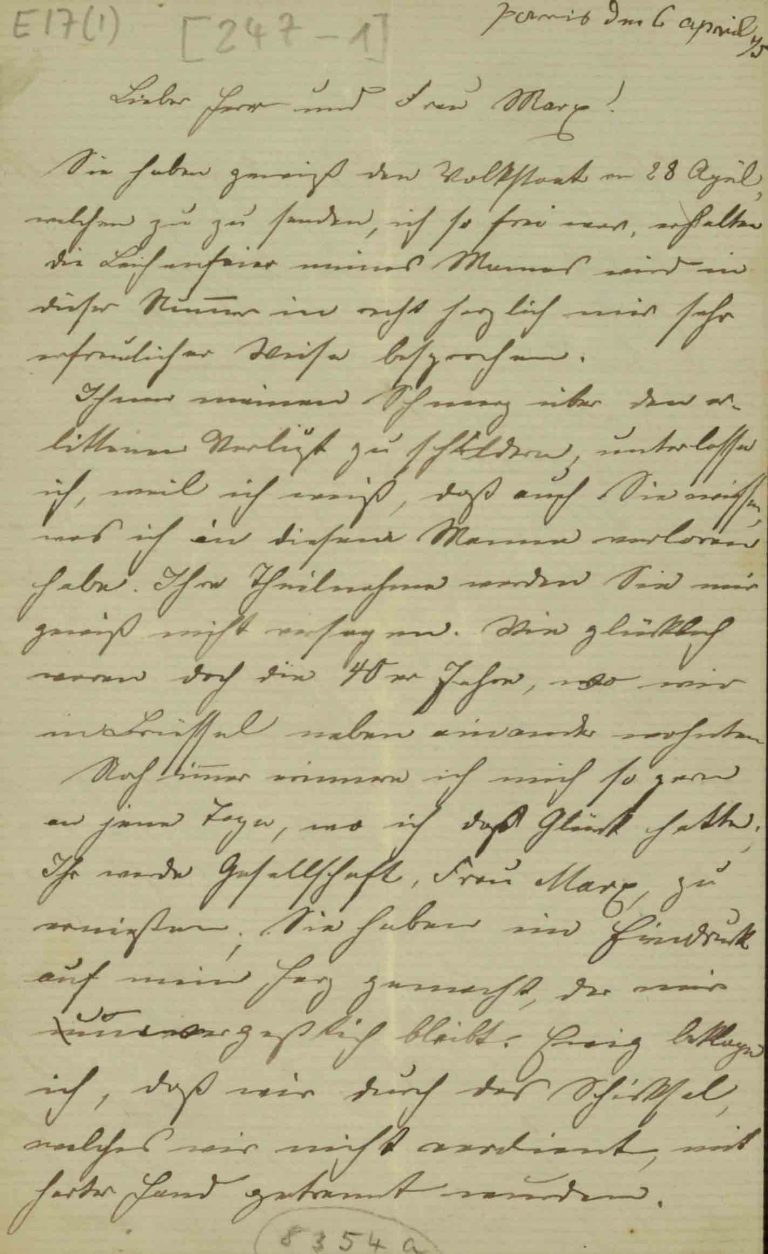 E17(1)
[247-1]
Paris den 6 April 75
Lieber Herr und Frau Marx!
Sie haben gewiß den Volkstaat 28 April,
welchen zu zu senden, ich so frei war, erhalten
die Leichenfeier meines Mannes wird in
dieser Nummer in recht herzlich mir sehr
erfreulicher Weise besprochen.
Ihnen meinen Schmerz über den er-
littenen Verlust zu schildern, unterlasse
ich, weil ich weiß, daß auch Sie wissen,
was ich in diesem Manne verloren
habe. Ihre Theilnahme werden Sie mir
gewiß nicht versagen. Wie glücklich
waren doch die 40er Jahre, wo wir
in Brüssel neben einander wohnten
Noch immer erinnere ich mich so gern
an jene Tage, wo ich daß Glück hatte,
Ihr werde Gesellschaft, Frau Marx, zu
Sie haben ein Eindruck
auf mein Herz gemacht, der mir
unvergeßlich bleibt. Ewig beklage
ich, daß wir durch das Schicksal,
welches wir nicht verdient, mit
harter Hand getrennt wurden.
8354a